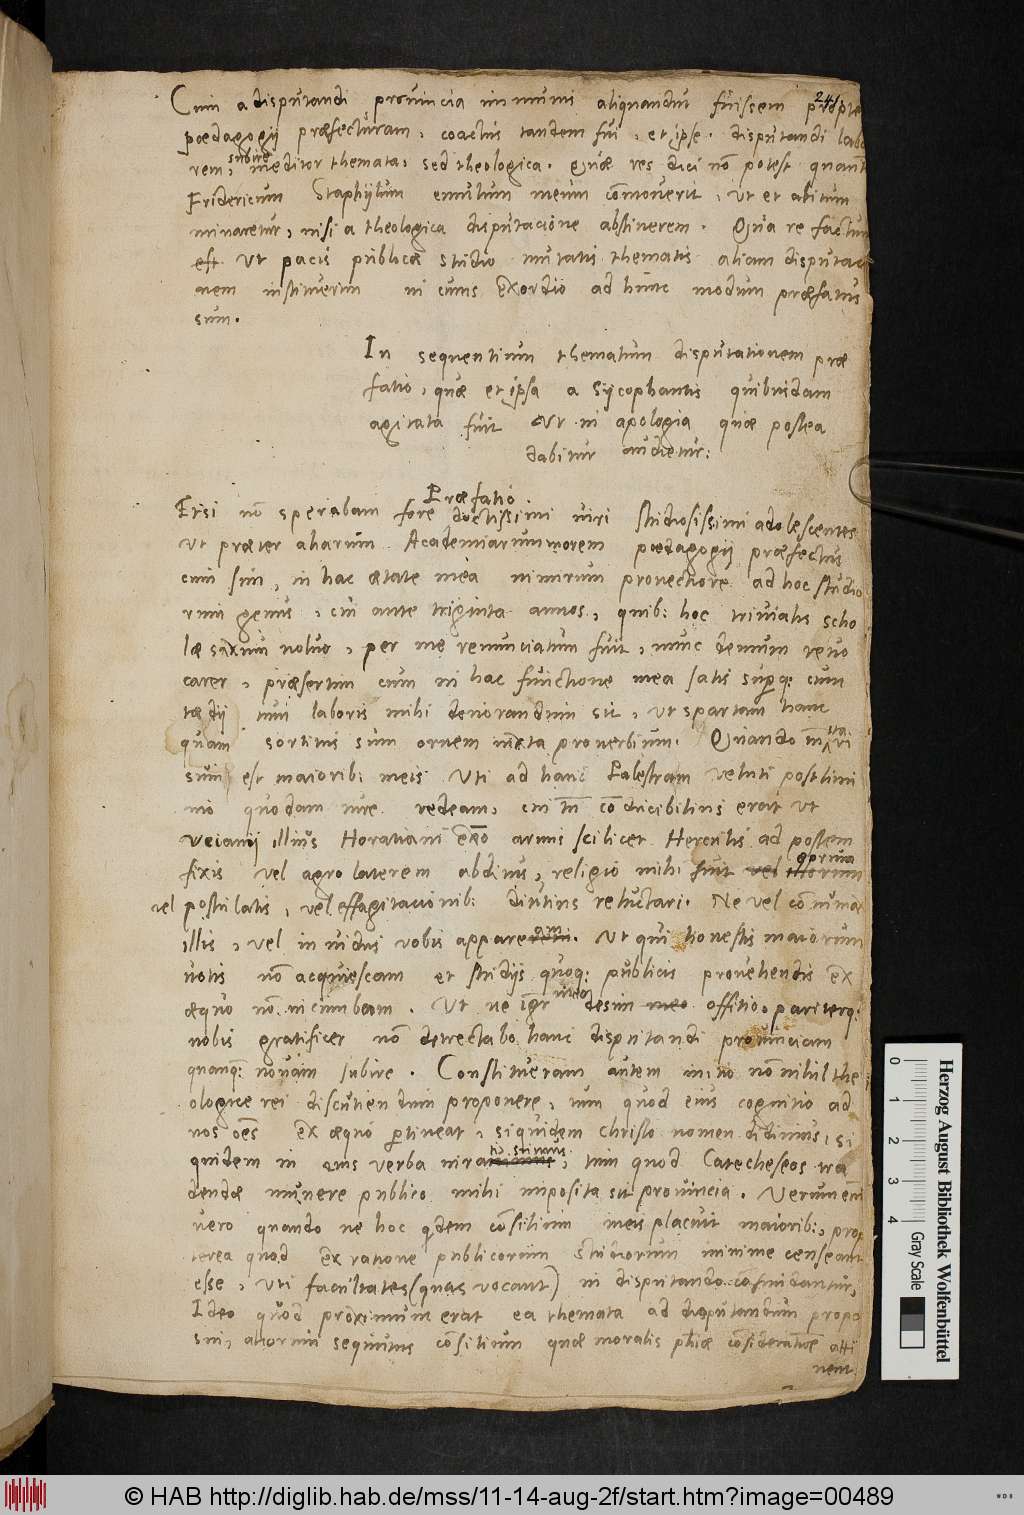 241
Cum a disputandi provincia immunis aliquandiu fuissem propter
paedagogij praefecturam, coactus tandem fui, et ipse disputandi labo
rem, subire, meditor themata, sed theologica. Quae res dici nō potest quant
Fridericum Staphylum emulum meum cōmoverit, ut et
minaretur, nisi a theologica disputatione abstinerem. Qua re factum
est ut pacis publicae studio mutatis thematis aliam disputatio
nem instituerim in cuius exordio ad hunc modum praefatus
sum.
In sequentium thematum disputationem prae
fatio, quae et ipsa a Sycophantis quibusdam
agitata fuit ut in apologia quae postea
dabitur audietur:
Praefatio.
Etsi nō sperabam fore doctissimi viri studiosissimi adolescentes
ut praeter aliarum Academiarum morem paedagogij praefectus
cum sim, in hac aetate mea nimirum provectiore ad hoc studio
rum genus, cui ante triginta annos, quib: hoc trivialis scho
lae saxum volvo, per me renunciatum fuit, nunc demum revo
carer, praesertim cum in hac functione mea satis supq: cum
taedij tum laboris mihi devorandum sit, ut spartam hanc
quam sortitus sum ornem iuxta proverbium. Quando
est maiorib: meis uti ad hanc Palestram veluti postlimi
nio quodam iure redeam, cui tn̄ cōducibilius erat ut
veianij illius Horatiani armis scilicet Herculis ad postem
fixis vel agro laterem abditus, religio mihi fuit vel illorum aprima
vel postulatis, vel efflagitationib: diutius reluctari. Ne vel cōtumax
illis, vel invidus vobis appaream. Ut qui honestis maiorum
votis nō acquiescam et studijs quoq: publicis provehendis ex
aequo nō incumbam. Ut ne igr̄ desim meo offitio, pariterq:
vobis gratificer nō detrectabo hanc disputandi provinciam
quamq: novam subire. Constitueram autem nōnihil the
ologicae rei discutiendum proponere, tum quod eius cognitio ad
nos oēs ex aequo ꝑtineat, siquidem Christo nomen dedimus, si
quidem in eius verba iura, tum quod Catecheseos tra
dendae munere publico mihi imposita sit provincia. Verum
vero quando ne hoc qdem cōsilium meis placuit maiorib:, prop
terea quod ex ratione publicorum studiorum minime censeant
esse, uti facultates (quas vocant) in disputando cōfundantur,
Ideo quod proximum erat ea themata ad disputandum propo
sui, aliorum sequutus cōsilium quae moralis phīae cōsiderationē atti
nent
0 1 2 3 4
Gray Scale
Herzog August Bibliothek Wolfenbüttel
© HAB http://diglib.hab.de/mss/11-14-aug-2f/start.htm?image=00489